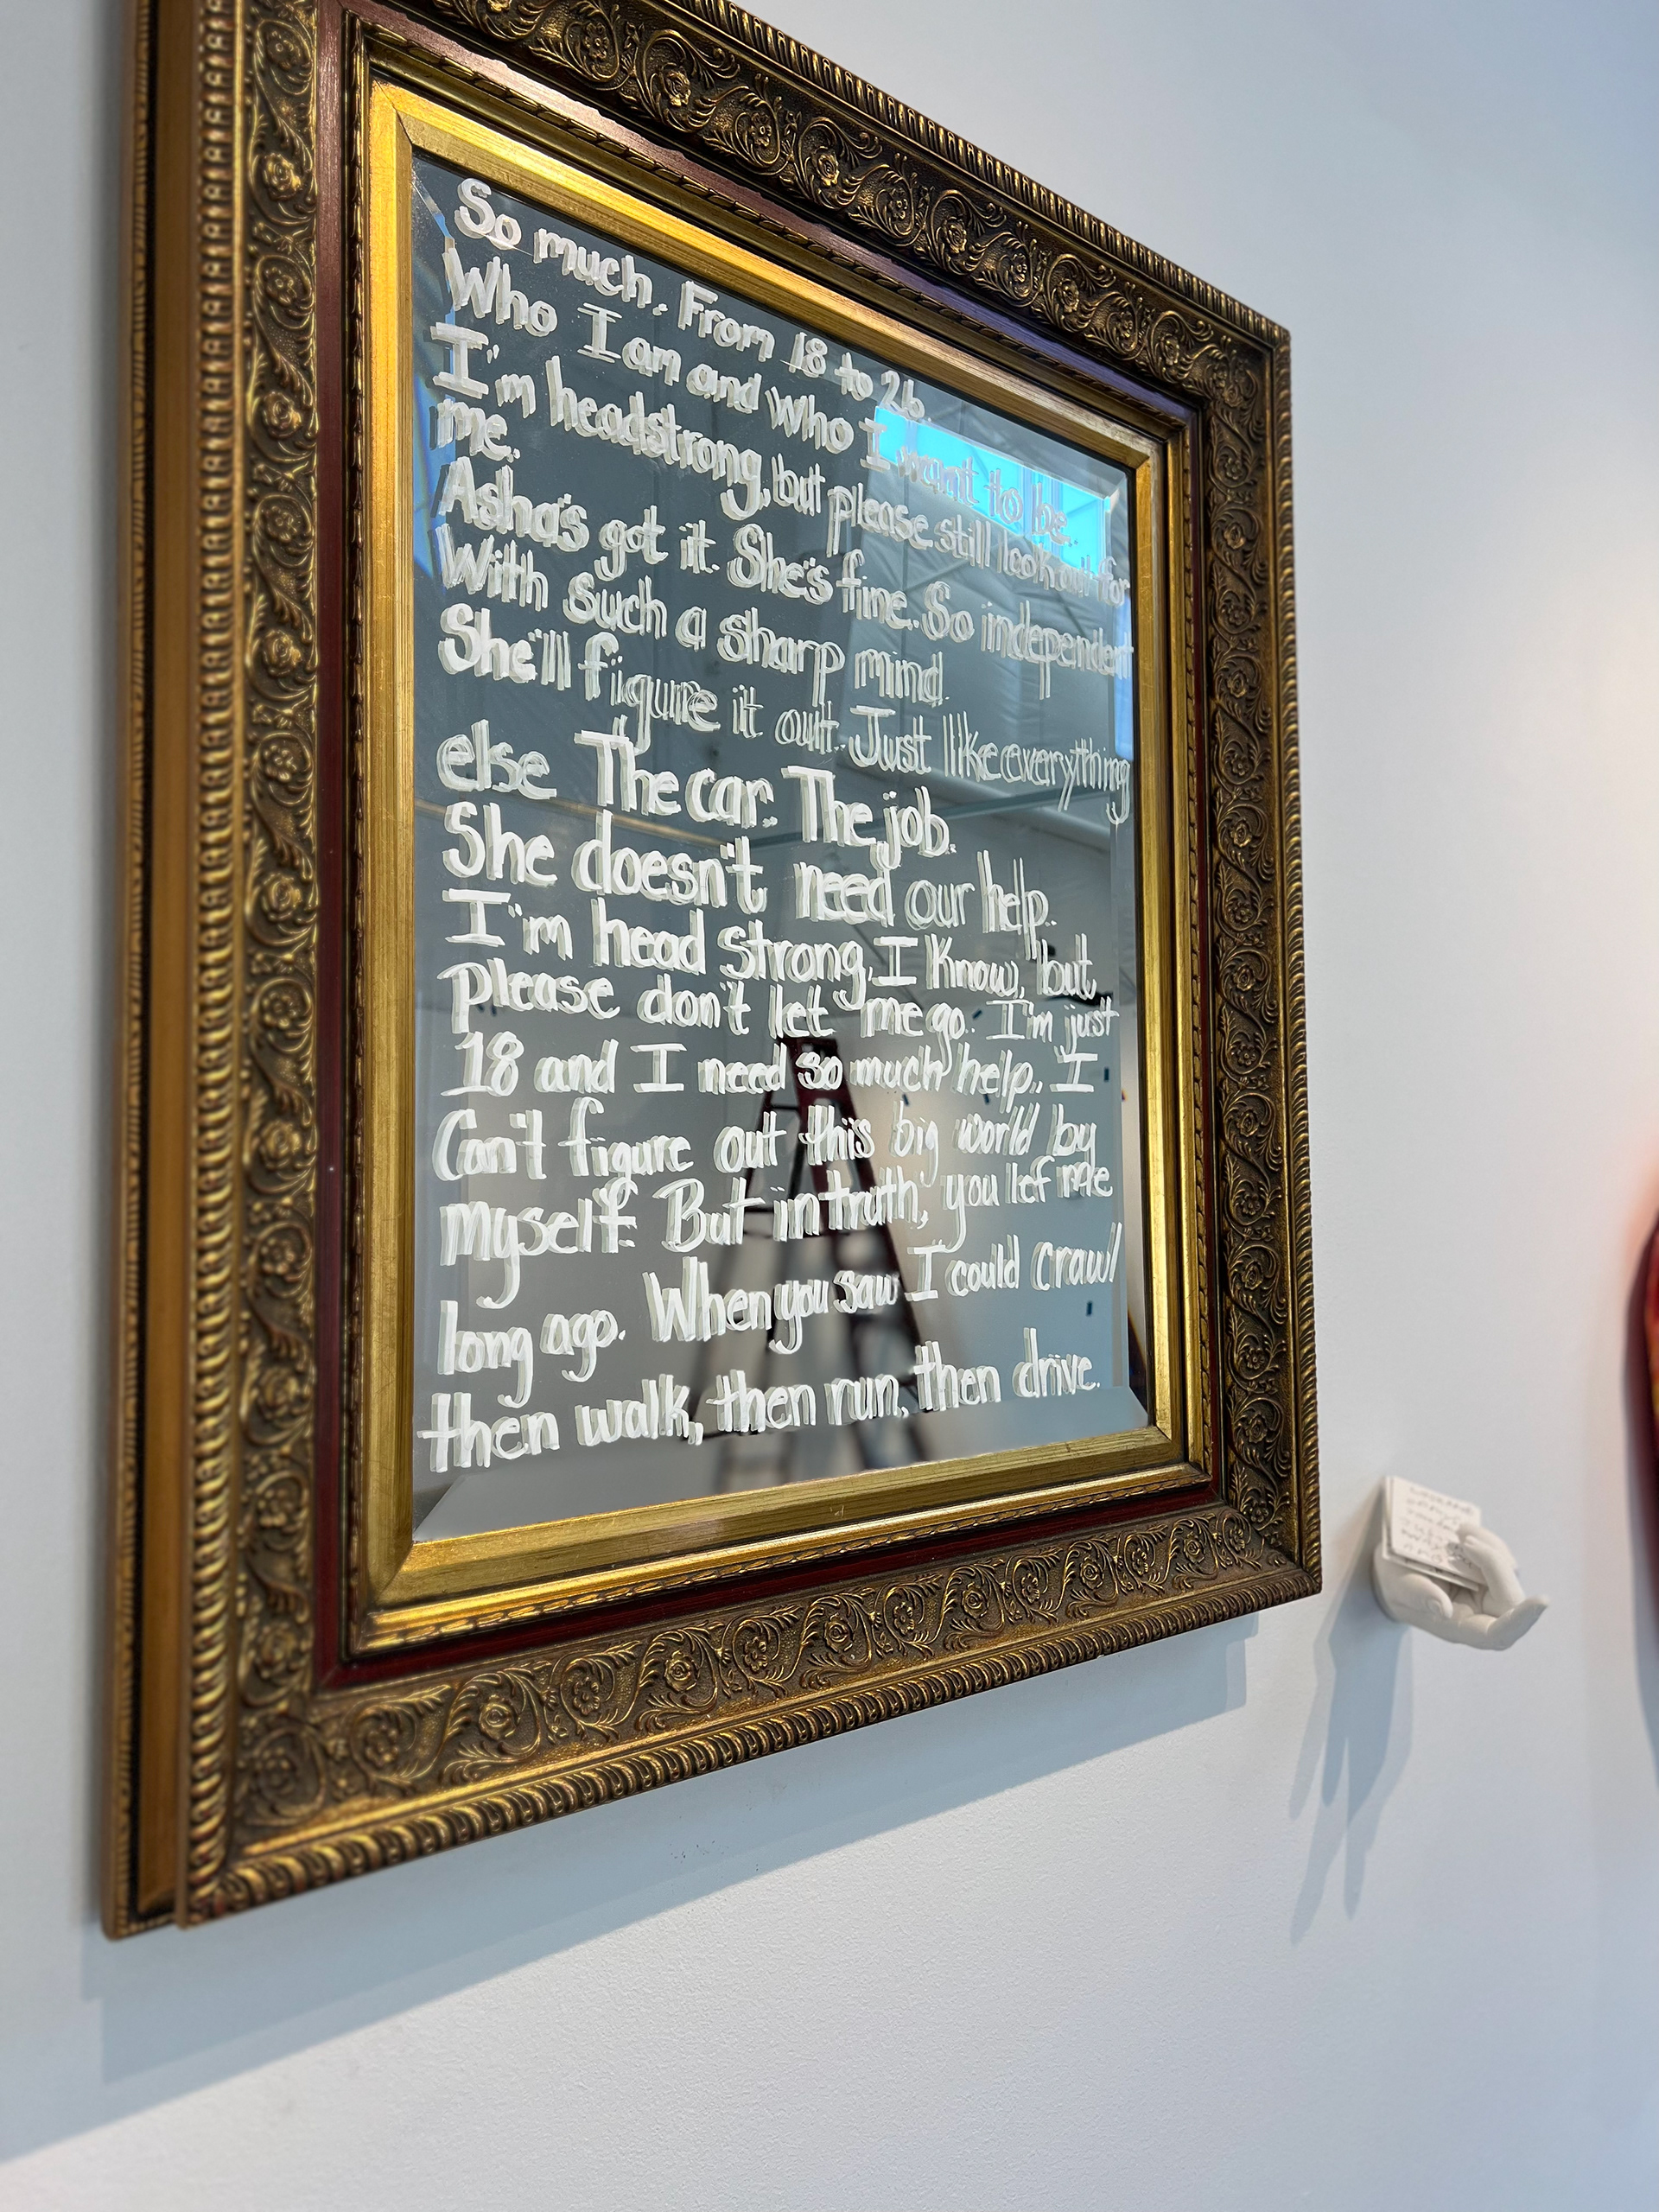 So much. From 18 to 26.
Who I am and who I want to be.
I'm headstrong, but please still look out for
me.
Asha's got it. She's fine. So independent
With such a sharp mind.
She'll figure it out. Just like everything
else The car. The job.
She doesn't need our help.
I'm head strong, I know, but
please don't let me go. I'm just
18 and I need so much help. I
Can't figure out this big world by
myself. But in truth, you lef me
long ago. When you saw I could crawl
then walk, then run, then drive.